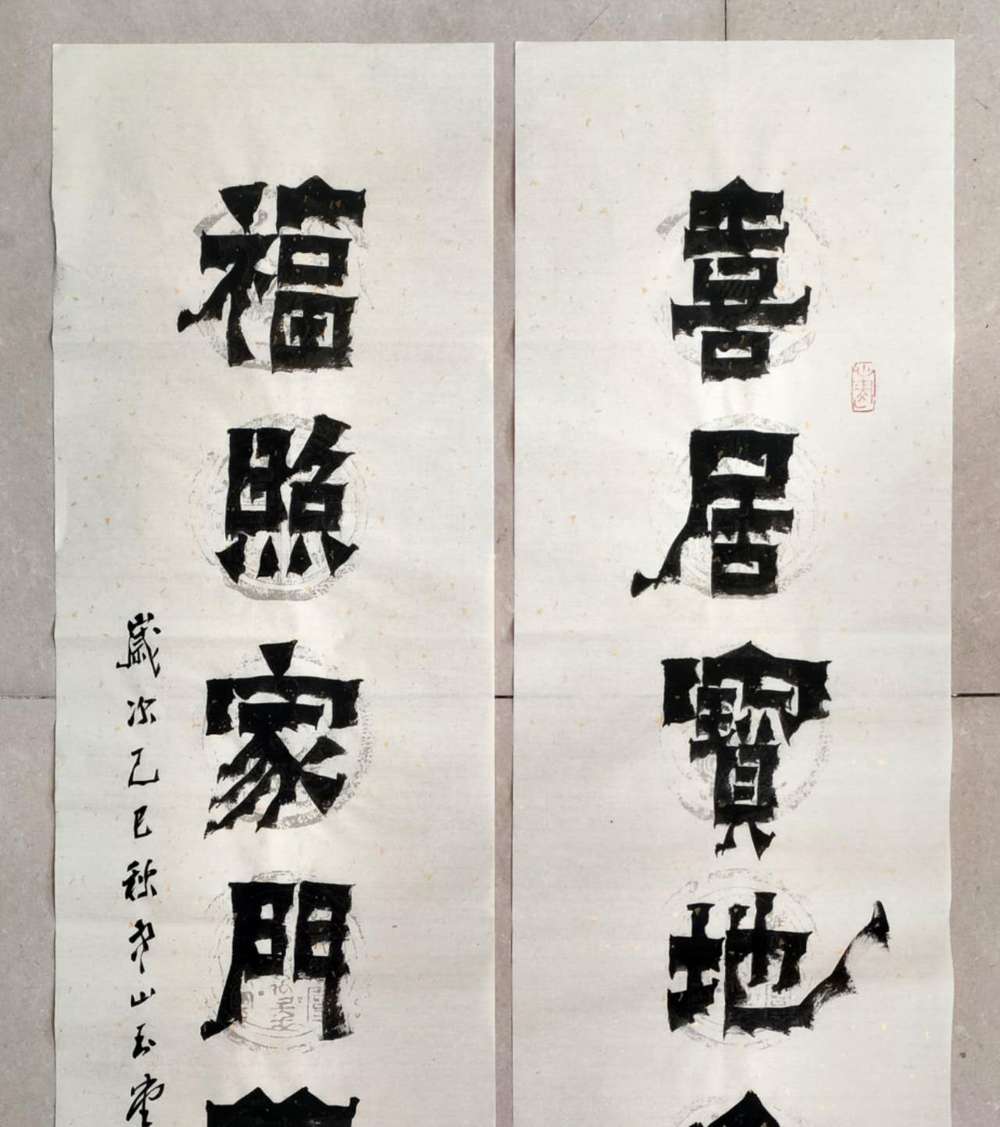 喜居寶地
福照家門
歲次己巳秋山玉堂